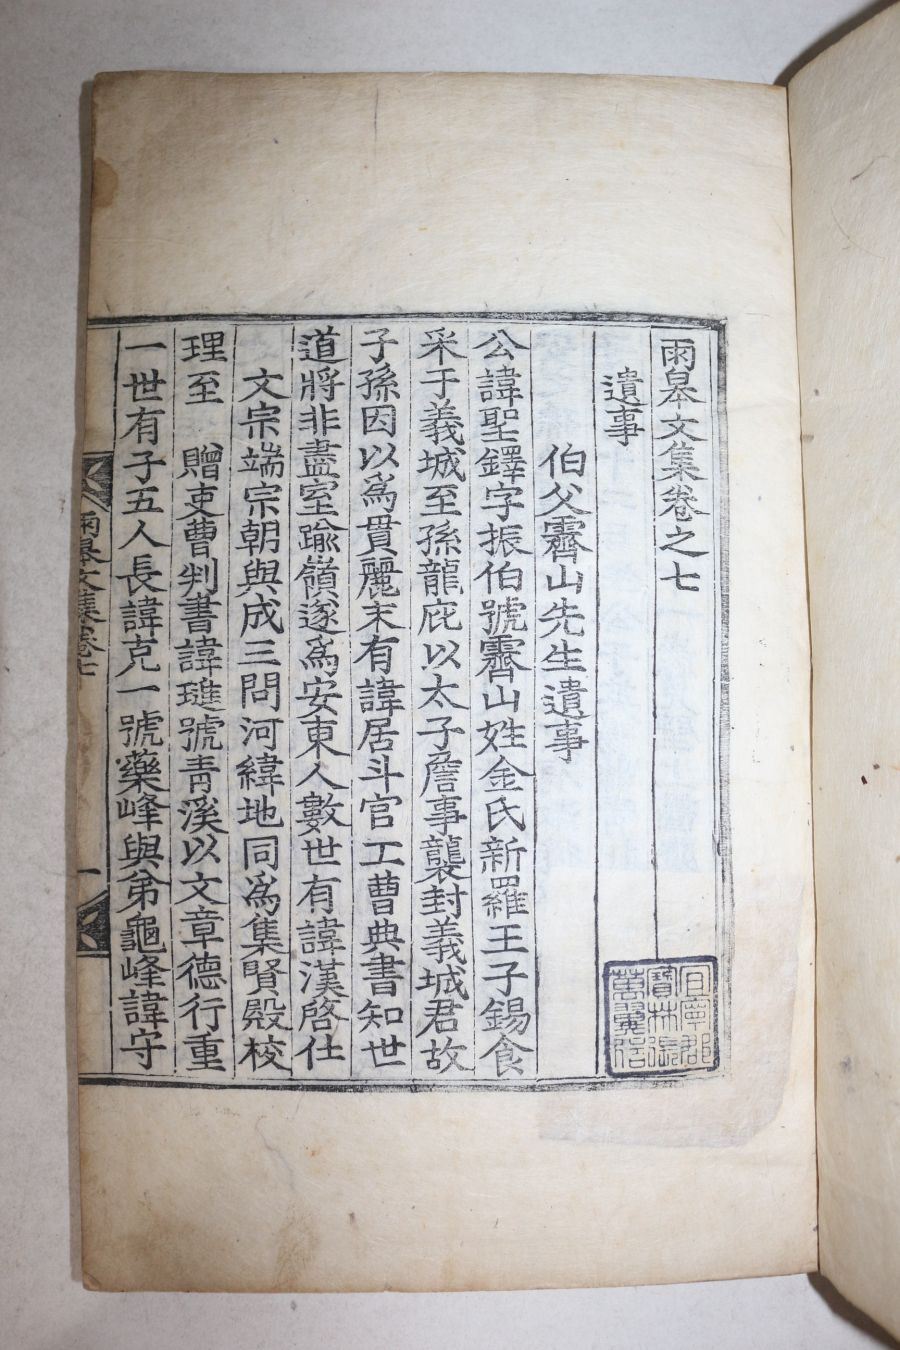 雨皐文集卷之七
遺事
伯父霽山先生遺事
公諱聖鐸字振伯號霽山姓金氏新羅王子錫食
采于義城至孫龍庇以太子詹事襲封義城君故
子孫因以爲貫麗末有諱居斗官工曹典書知世
道將非盡室踰嶺遂爲安東人數世有諱漢啓仕
文宗端宗朝與成三問河緯地同爲集賢殿校
理至 贈吏曹判書諱璡號靑溪以文章德行重
一世有子五人長諱克一號藥峰與弟龜峰諱守
雨皐文集卷七
一